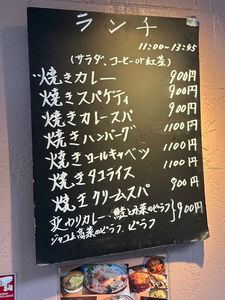 ランチ
11:00-13:45
(サラダ、コーヒーor紅茶)
焼きカレー 900円
焼きスパゲティ 900円
焼きカレースパ 900円
焼きハンバーグ 1100円
焼きロールキャベツ 1100円
焼きタコライス 1100円
焼きクリームスパ 900円
変わりカレー、鮭と九菜のピラフ
ジャコと高菜のピラフ、ピラフ }900円